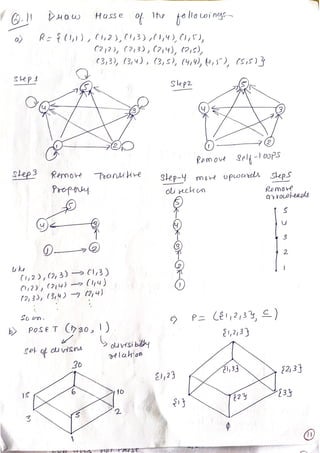 Q.11 Draw Hasse of the followings-
a) R = {(1,1), (1,2), (1,3), (1,4), (1,5),
(2,2), (2,3), (2,4), (2,5),
(3,3), (3,4), (3,5), (4,4), (4,5), (5,5)}
Step 1
Step 2
5
4
3
1
2
5
4
3
1
2
Remove Self-loops
Step 3 Remove Transitive
Property
Step-4 move upwards
direction
Step 5
Remove
arrowheads
5
4
3
1
2
5
4
3
2
1
5
4
3
2
1
like
(1,2), (2,3) → (1,3)
(1,2), (2,4) → (1,4)
(2,3), (3,4) → (2,4)
So on.
b) POSET (D30, |)
set of divisors
divisibility
relation
30
15
6
10
3
5
2
1
c) P = ({1,2,3}, ⊆)
{1,2,3}
{1,2}
{1,3}
{2,3}
{1}
{2}
{3}
φ
11